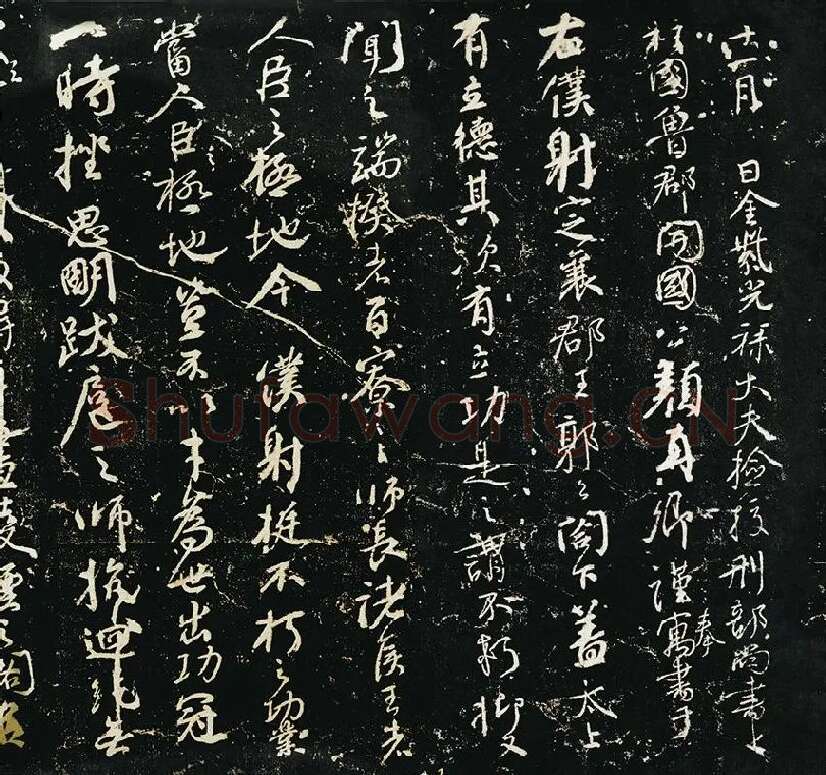 十一月 日金紫光祿大夫檢挍刑部尚書上
柱國魯郡開國公顏真卿謹奉寓書于
右僕射定襄郡王郭公閤下蓋太上
有立德其次有立功是之謂不朽抑又
聞之端揆者百寮之師長諸侯王者
人臣之極地今僕射挺不朽之功業
當人臣極地豈不以才為世出功冠
一時挫思明跋扈之師抗迴紇無
Shufawang.CN